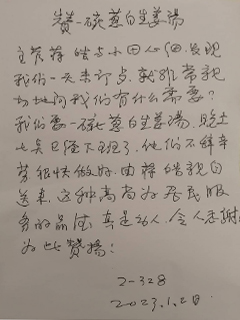 赞一碗葱白生姜汤
主管蒋皓与小田
我们一天来订点,就非常亲
切地问我们有什么需要?
我们要一碗葱白生姜汤,晚上
七点已经下班了,他们不辞辛
劳很快做好,由蒋皓亲自
送来,这种高尚为居民服
务的品德真是感人,令人感谢
为此赞扬!
2-328
2023.1.2日